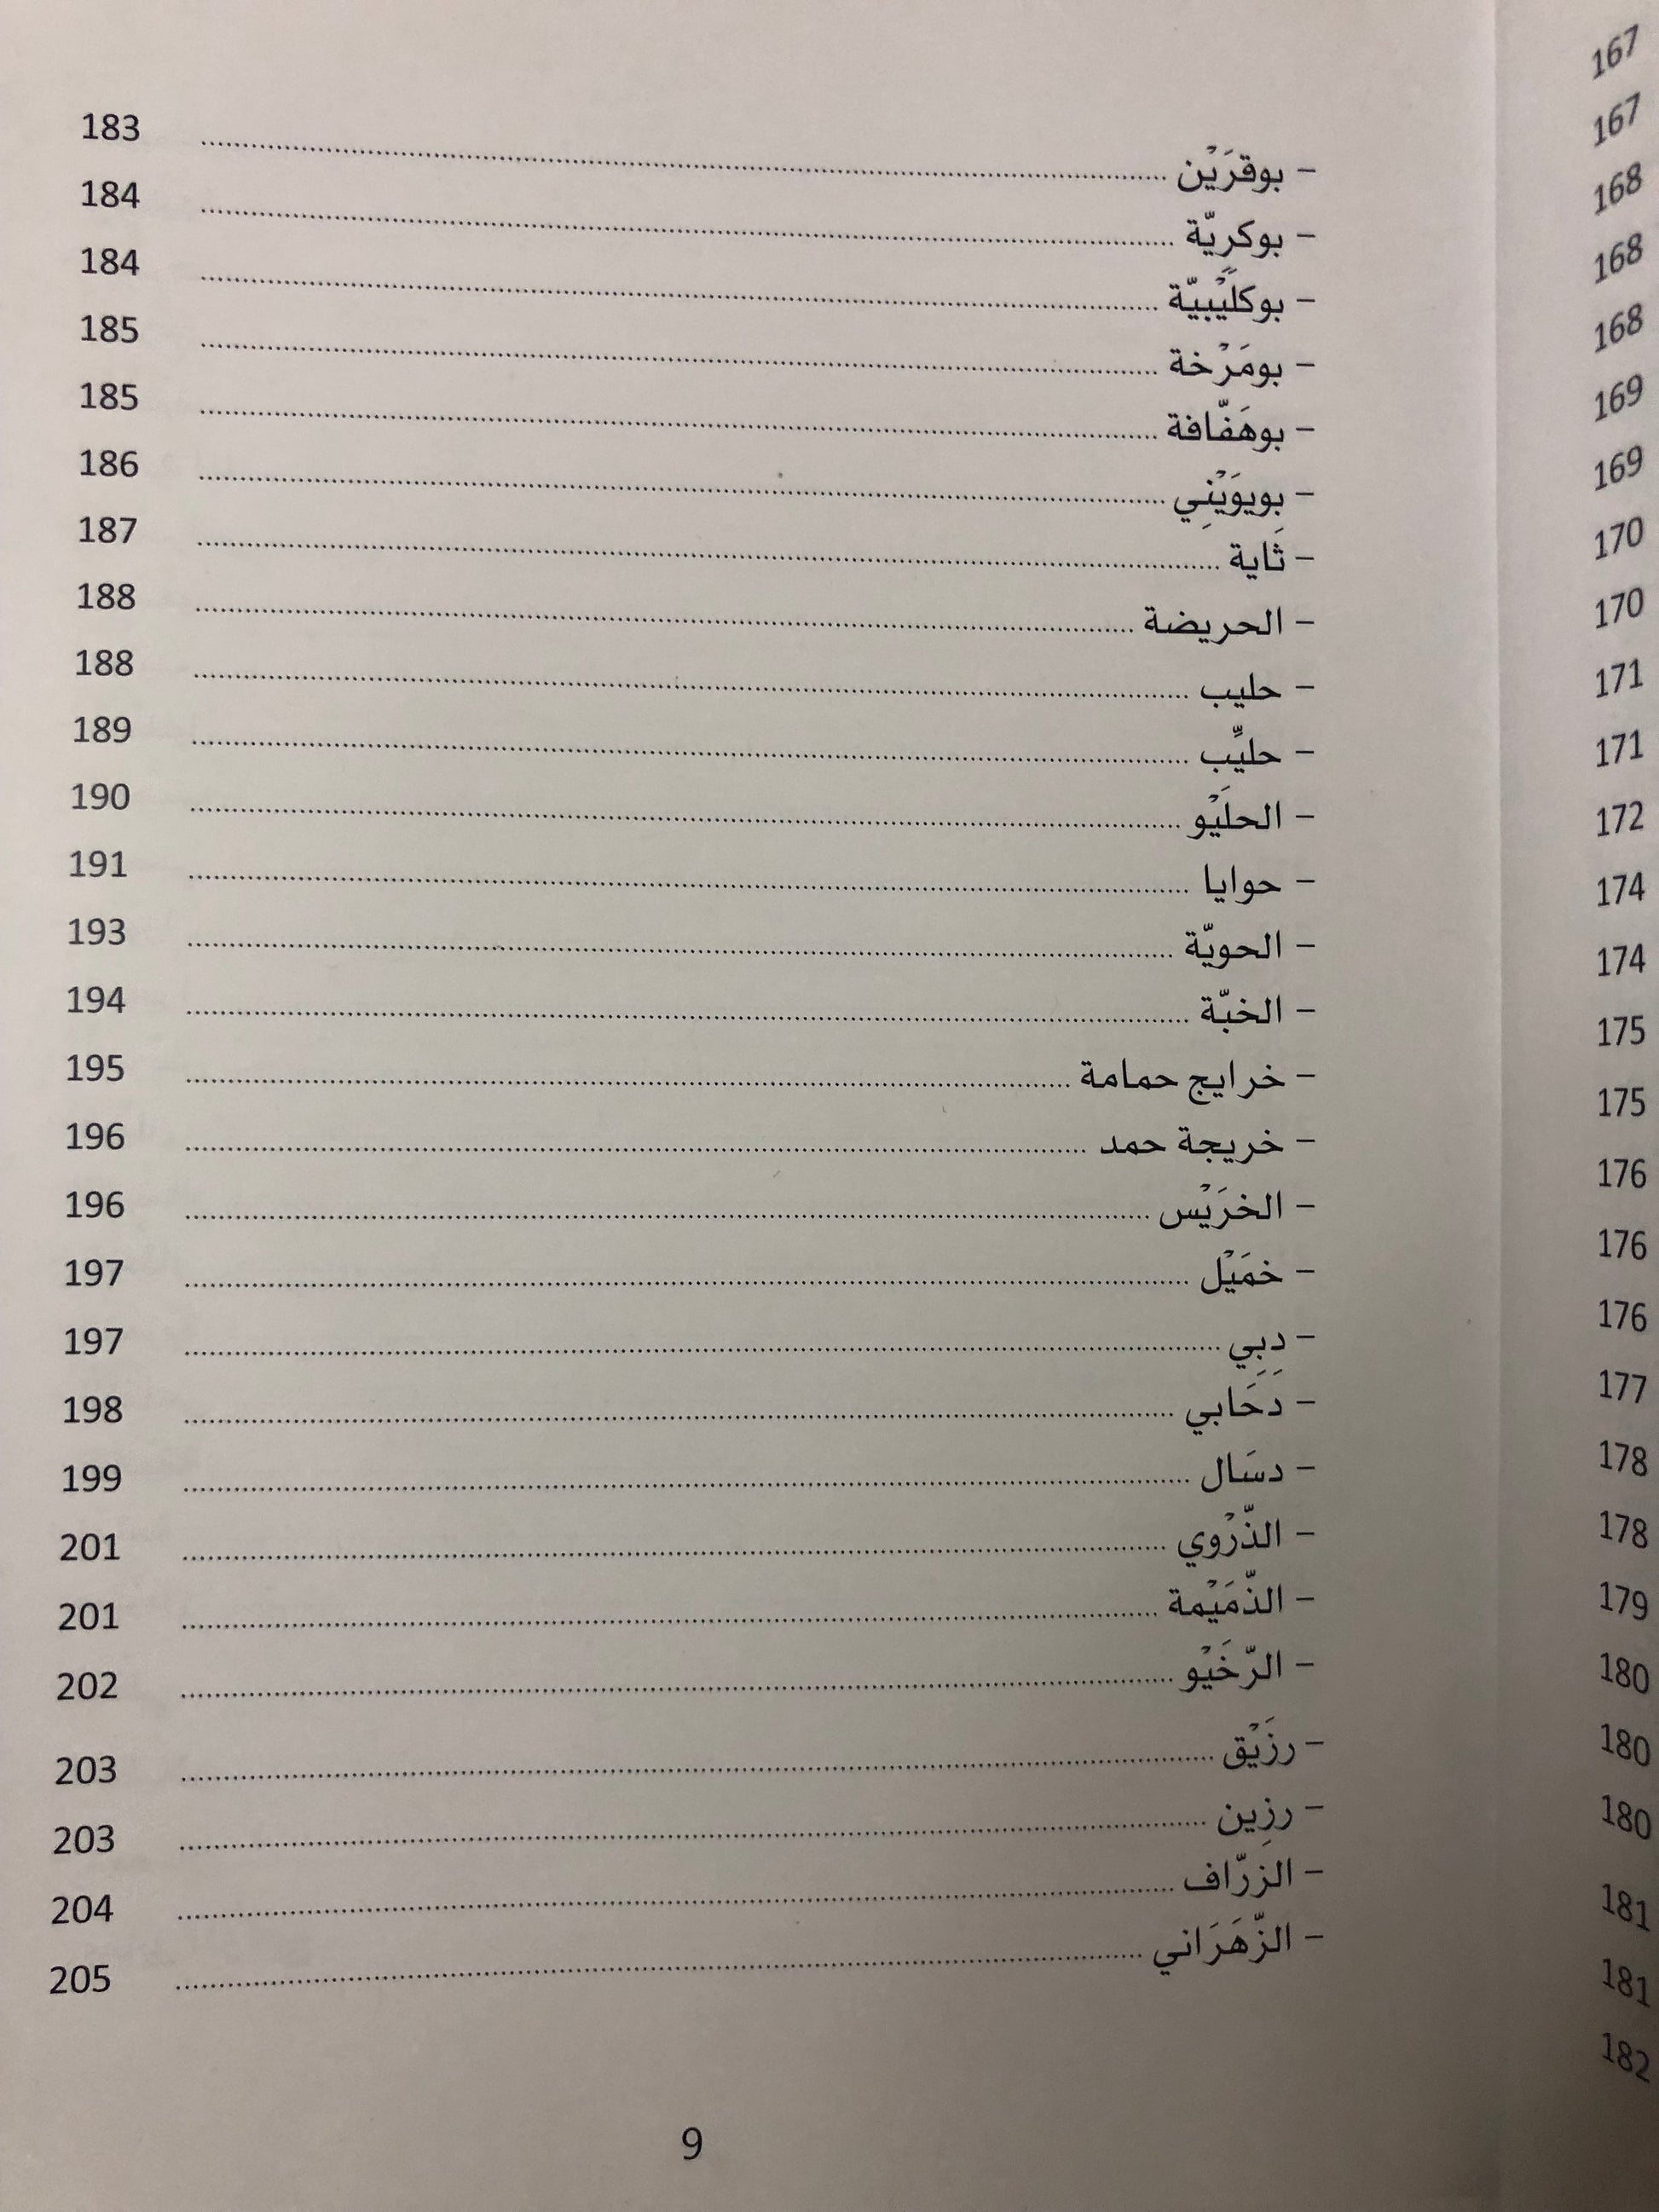 – بوقرَيْن ........ 183
– بوكريّة ........ 184
– بوكلَيْبيّة ........ 184
– بومَرْخة ........ 185
– بوهَفّافة ........ 185
– بويوَيْنِي ........ 186
– ثَاية ........ 187
– الحريضة ........ 188
– حليب ........ 188
– حليِّب ........ 189
– الحلَيْو ........ 190
– حوايا ........ 191
– الحويّة ........ 193
– الخبّة ........ 194
– خرايج حمامة ........ 195
– خريجة حمد ........ 196
– الخرَيْس ........ 196
– خمَيْل ........ 197
– دبِي ........ 197
– دَحَابي ........ 198
– دسَال ........ 199
– الذّرْوي ........ 201
– الذّمَيْمة ........ 201
– الرّخَيْو ........ 202
– رزَيْق ........ 203
– رزِين ........ 203
– الزرّاف ........ 204
– الزّهَرَاني ........ 205
9
167
167
168
168
168
169
169
170
170
171
171
172
174
174
175
175
176
176
176
177
178
178
179
180
180
180
181
181
182